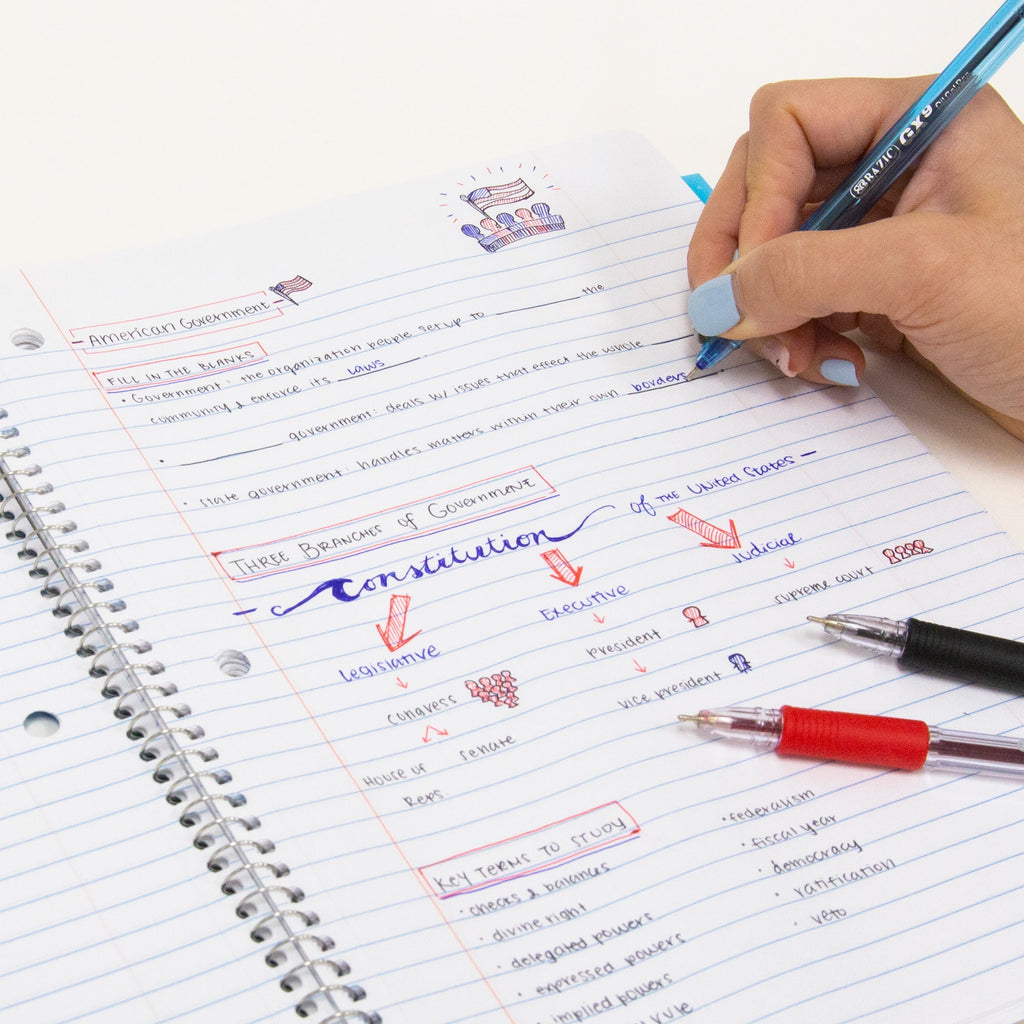 American Government
FILL IN THE BLANKS
• Government: the organization people set up to ________ the
community & enforce its laws.
• ________ government: deals w/ issues that effect the whole ________
• State government: handles matters within their own borders
THREE BRANCHES of GOVERNMENT
- Constitution of THE United States -
Legislative
Executive
Judicial
congress
president
supreme court
House of Reps.
senate
vice president
KEY TERMS TO STUDY
• checks & balances
• divine right
• delegated powers
• expressed powers
• implied powers
rule
• federalism
• fiscal year
• democracy
• ratification
• veto
BAZIC GX9 Oil Gel Pen